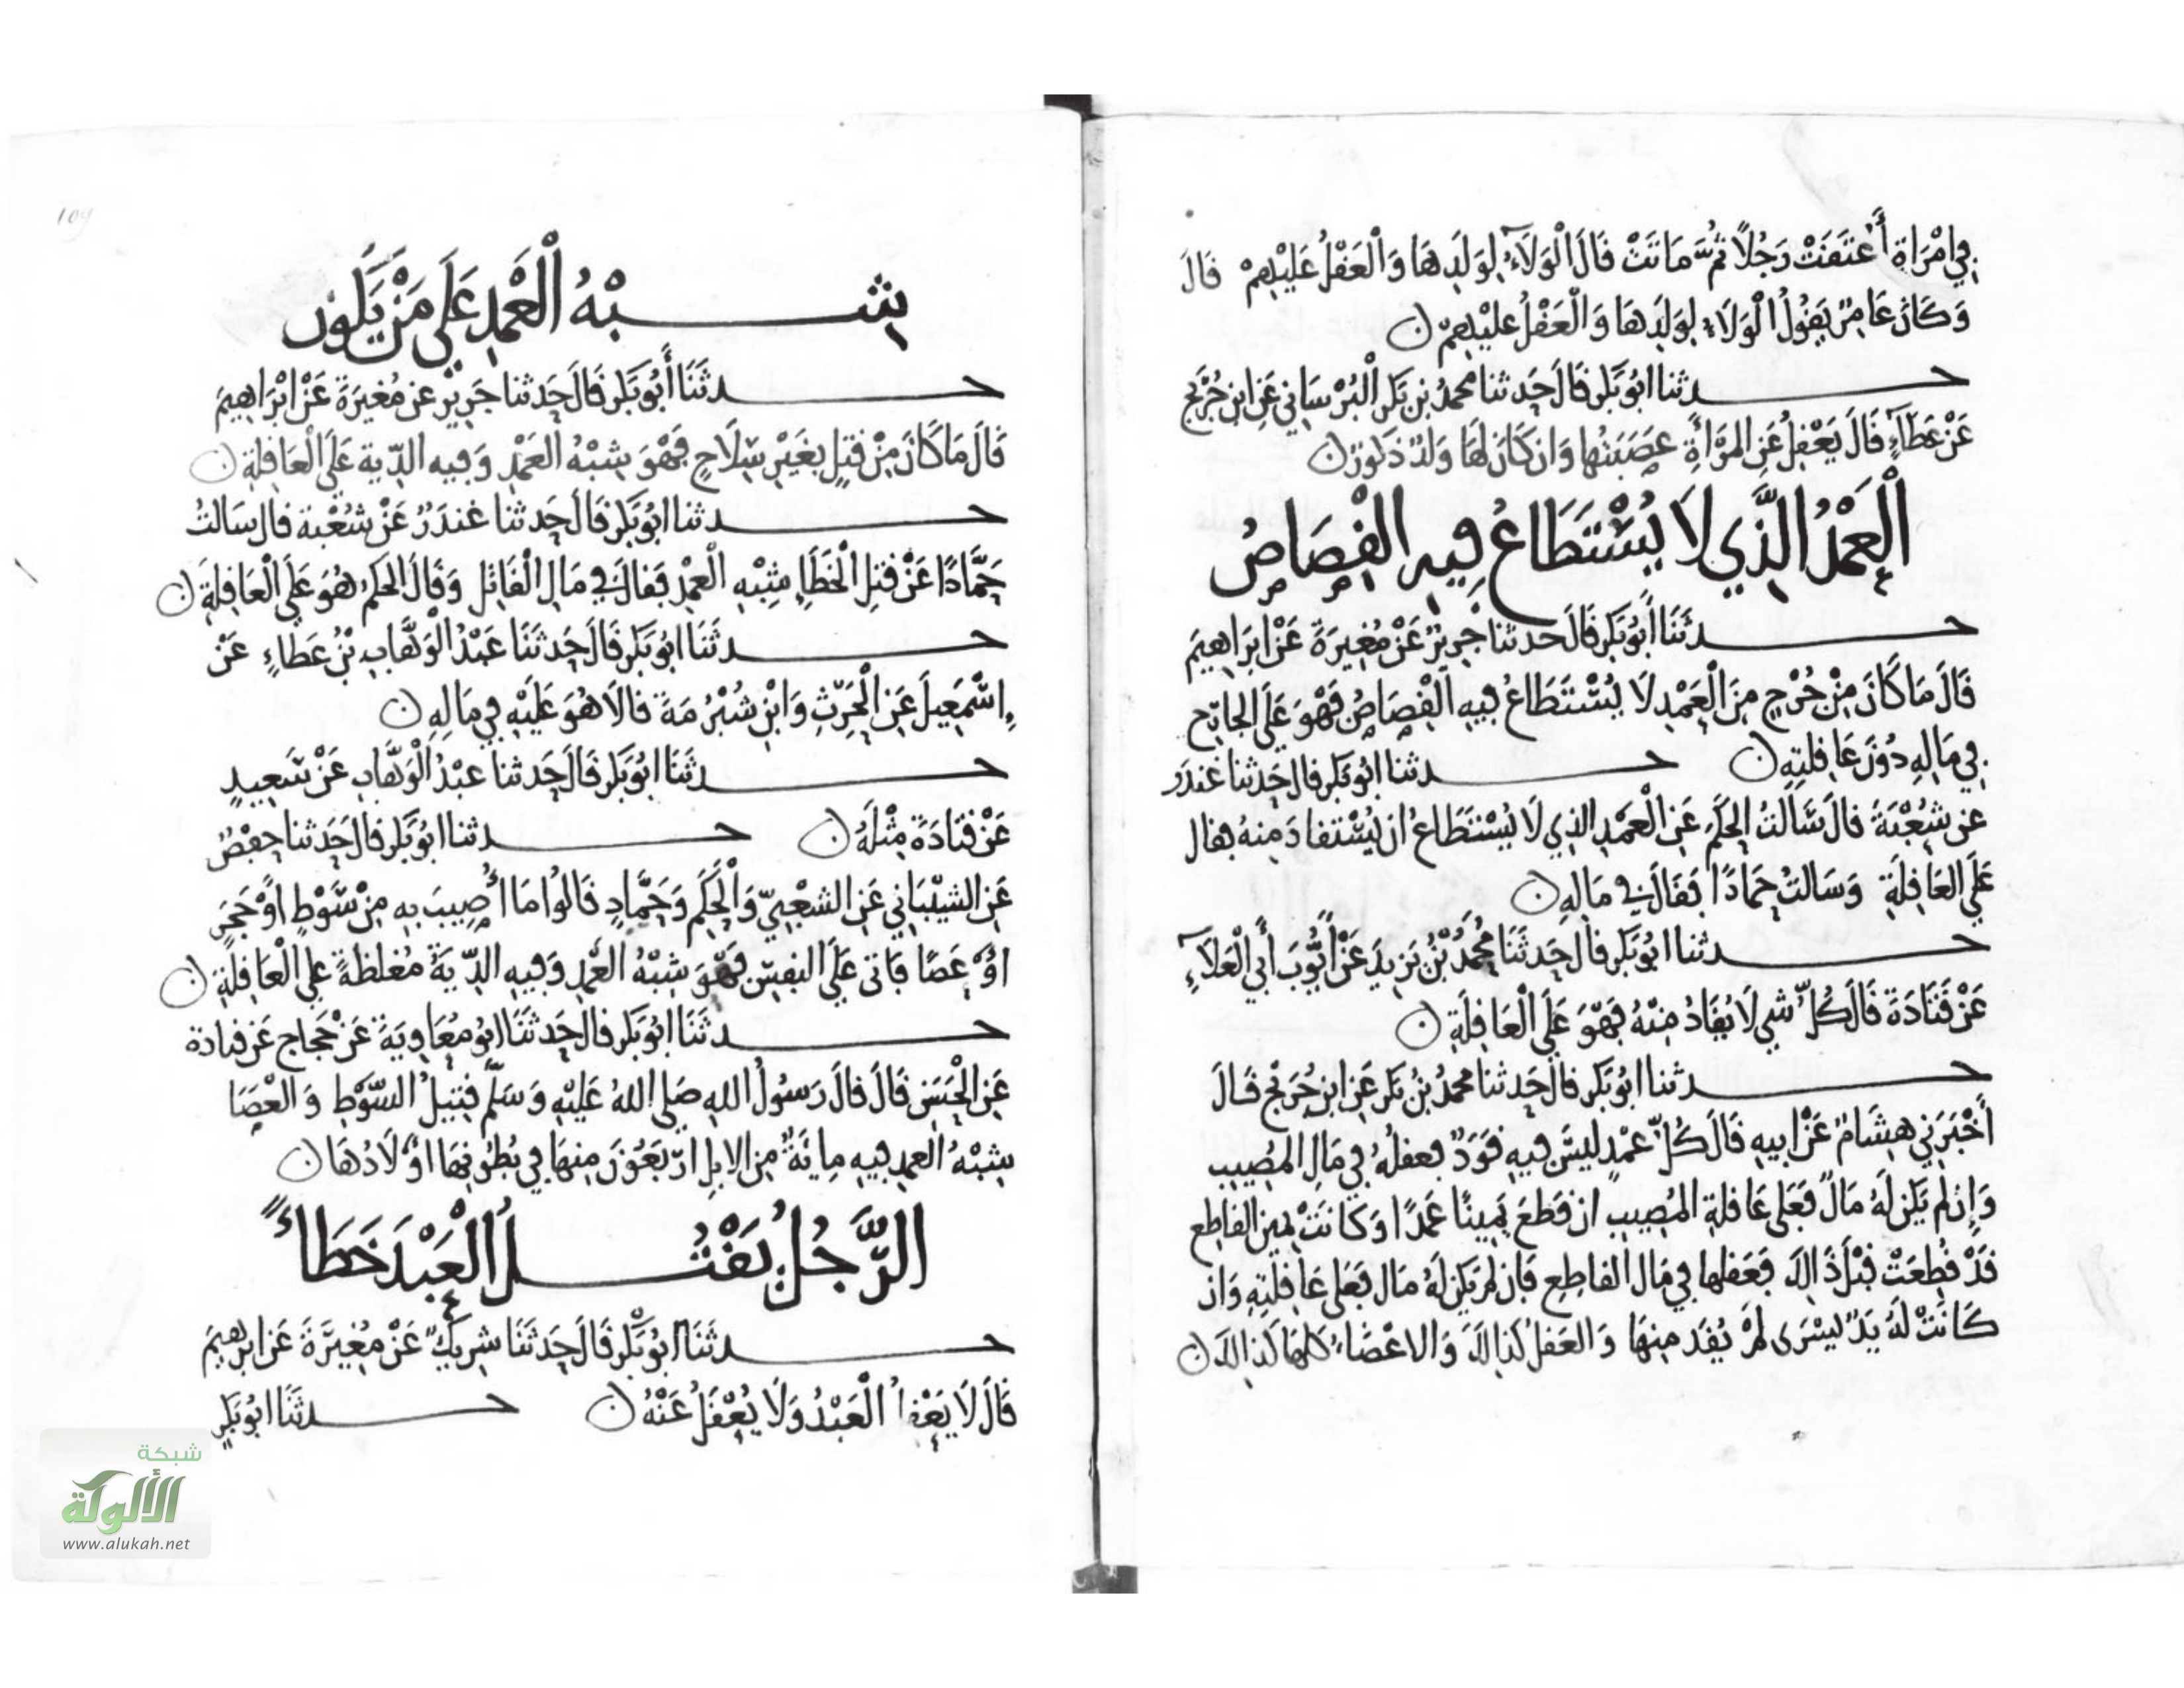 فِي امْرَاةٍ أَعْتَقَتْ رَجُلًا ثُمَّ مَاتَتْ قَالَ الْوَلَآءُ لِوَلَدِهَا وَالْعَقْلُ عَلَيْهِمْ قَالَ
وَكَانَ عَامِرٌ يَقُولُ الْوَلَاءُ لِوَلَدِهَا وَالْعَقْلُ عَلَيْهِمْ ن
حدثنا ابُو بَكر قَالَ حَدثنا محمدُ بن بَكر الْبُرْسَاني عَن ابن جُرَيج
عَنْ عَطَآءٍ قَالَ يَعْقِلُ عَنِ المَرْأَةِ عَصَبَتُهَا وَان كَانَ لَهَا وَلدٌ ذكورٌ ن
الْعَمْدُ الَّذِي لَا يُسْتَطَاعُ فِيهِ الْقِصَاصُ
حدثَنَا أَبُو بَكر قَالَ حَدثنا جَرِيرٌ عَنْ مُغِيرَةَ عَنْ ابرَاهِيمَ
قَالَ مَا كَانَ مِنْ جُرْحٍ مِنَ الْعَمْدِ لَا يُسْتَطَاعُ فِيهِ الْقِصَاصُ فَهْوَ عَلَى الجَارِحِ
فِي مَالِهِ دُونَ عَاقِلَتِهِ ن حدثنا ابُو بَكر قال حَدثنا غندَر
عن شُعْبَةَ قال سَالتُ الحَكَم عَنِ الْعَمْدِ الذِي لَا يُسْتَطَاعُ ان يُسْتقادَ مِنهُ فقال
عَلَى العَاقِلَةِ وَسَالتُ حَمادًا فَقَالَ في مَالِهِ ن
حدثنا ابُو بَكر قال حَدثَنَا مُحَمَّدُ بْنُ يَزِيدَ عَنْ أَيُّوبَ أَبِي الْعَلَآءِ
عَنْ قَتَادَةَ قَالَ كُلُّ شي لَا يُقَادُ مِنْهُ فَهْوَ عَلَى الْعَاقِلَةِ ن
حدثنا ابُو بَكر قال حَدثنا محمدُ بْنُ بَكر عَن ابن جُرَيج قَالَ
أَخْبَرَنِي هِشَامٌ عَنْ ابِيهِ قَالَ كُلُّ عَمْدٍ ليسَ فِيهِ قَوَدٌ فعقلُهُ فِي مَالِ المُصِيبِ
وَإِن لم يَكن لهُ مَالٌ فَعَلى عَاقلةِ المُصِيبِ ان قَطَعَ يَمِينًا عَمدًا وَكَانَتْ يمين القاطِعِ
قَدْ قُطِعَتْ قَبْلَ ذَالِكَ فَعَقلها فِي مَال القاطِعِ فَان لم يَكن لهُ مَال فَعَلى عَاقِلَتِهِ وَان
كَانَتْ لَهُ يَدٌ يسْرَى لَمْ يُقَد مِنهَا وَالعَقلُ كَذَالِكَ وَالاعْضَاءُ كلهَا كَذَالِكَ ن
109
شِبْهُ الْعَمْدِ عَلَى مَنْ يَكُونُ
حدثَنَا أَبُو بَكر قَالَ حَدثنا جَرِيرٌ عن مُغِيرَةَ عَنْ ابْرَاهِيمَ
قَالَ مَا كَانَ مِنْ قَتلٍ بغَيْرِ سِلَاحٍ فَهْوَ شِبْهُ العَمْدِ وَفِيهِ الدِّيَة عَلَى الْعَاقِلَةِ ن
حدثنا ابُو بَكر قَالَ حَدثنا غندَرٌ عَنْ شعْبَةَ قال سَالتُ
حَمَّادًا عَنْ قتلِ الْخَطَإِ شِبْهِ الْعَمْدِ فَقالَ في مَالِ الْقَاتِلِ وَقَالَ الحكمُ هُوَ عَلَى الْعَاقِلَةِ ن
حدثَنَا ابُو بَكر قَالَ حَدثَنَا عَبْدُ الْوَهَّابِ بْنُ عَطَاءٍ عَنْ
إِسْمَعِيلَ عَن الْحَرِثِ وَابْنِ شُبْرُمَةَ قالَا هُوَ عَلَيْهِ فِي مَالِهِ ن
حدثَنَا ابُو بَكر قَالَ حَدثنا عبْدُ الْوَهَّابِ عَنْ سَعِيدٍ
عَنْ قَتَادَةَ مِثْلَهُ ن حدثنا ابُو بَكر قَالَ حَدثنا حفْصٌ
عَنِ الشيْبَانِي عَنِ الشعْبِيِّ وَالْحَكَم وَحَمَّادٍ قَالُوا مَا أُصِيبَ بِهِ مِنْ سَوْطٍ اوْ حَجَرٍ
اوْ عَصًا فَاتى عَلَى النفسِ فَهْوَ شِبْهُ العَمْدِ وَفِيهِ الدِّيَةُ مُغلظةً عَلَى الْعَاقِلَةِ ن
حدثَنَا ابُو بَكر قَال حَدثَنَا ابُو مُعَاوِيَةَ عَنْ حَجاج عَن قتادة
عَنِ الْحَسَنِ قَالَ قالَ رَسُولُ اللهِ صَلى اللهُ عَلَيْهِ وَسَلَّمَ قَتِيلُ السَّوْطِ وَالْعَصَا
شِبْهُ العَمدِ فِيهِ مِايَةٌ مِن الابِلِ ارْبَعُونَ مِنهَا فِي بُطُونِهَا اوْلَادُهَا ن
الرَّجُلُ يَقْتُلُ الْعَبْدَ خَطَاءً
حدثَنَا ابُو بَكْرٍ قَالَ حَدثَنَا شرِيكٌ عَنْ مُغِيرَةَ عَن ابرهيمَ
قَالَ لَا يَعْقلُ الْعَبْدُ وَلَا يُعْقَلُ عَنْهُ ن حدثَنَا ابُو بَكرٍ
شبكة
الألوكة
www.alukah.net